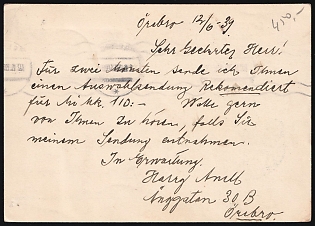 Örebro 12/6-39
450,-
Sehr Geehrter Herr!
Für zwei Monaten sende ich Ihnen
einen Auswahlsendung Rekomendiert
für Mk 110:- Wolle gern
von Ihnen zu hören, falls Sie
meinem Sendung entnehmen.
In Erwartung.
Harry
30 B
Örebro